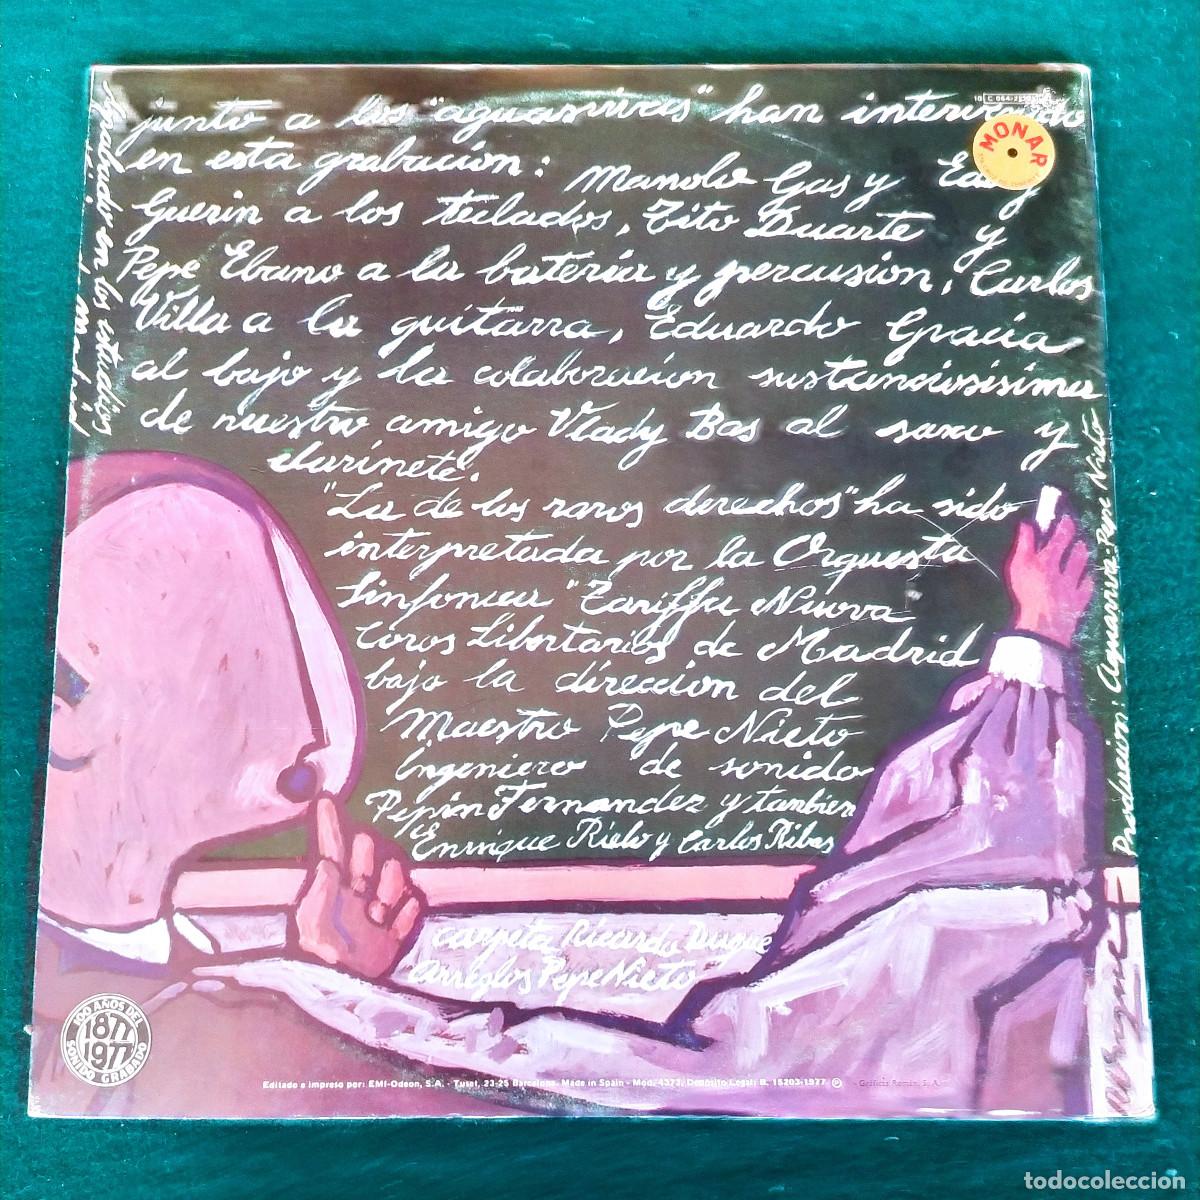 junto a los "aguasvivas" han intervenido
en esta grabación: Manolo Gas y Eddy
Guerin a los teclados, Tito Duarte y
Pepe Ebano a la batería y percusion, Carlos
Villa a la guitarra, Eduardo Gracia
al bajo y la colaboracion sustanciosísima
de nuestro amigo Vlady Bas al saxo y
clarinete.
"La de los raros derechos" ha sido
interpretada por la Orquesta
Sinfonica "Tariffa Nuova"
Coros Libertarios de Madrid
bajo la dirección del
Maestro Pepe Nieto
Ingeniero de sonido
Pepin Fernandez y tambien
Enrique Rielo y Carlos Ribas
carpeta Ricardo Duque
arreglos Pepe Nieto
Grabado en los estudios
de Madrid
Produccion: Aguaviva-Pepe Nieto
MONAR
10 C 064-
100 AÑOS DEL
1877
1977
SONIDO GRABADO
Editado e impreso por: EMI-Odeon, S.A. - Tuset, 23-25 Barcelona. Made in Spain - Mod. 4373. Depósito Legal: B. 15203-1977 ℗ - Gráficas Román, S. A.
todocoleccion